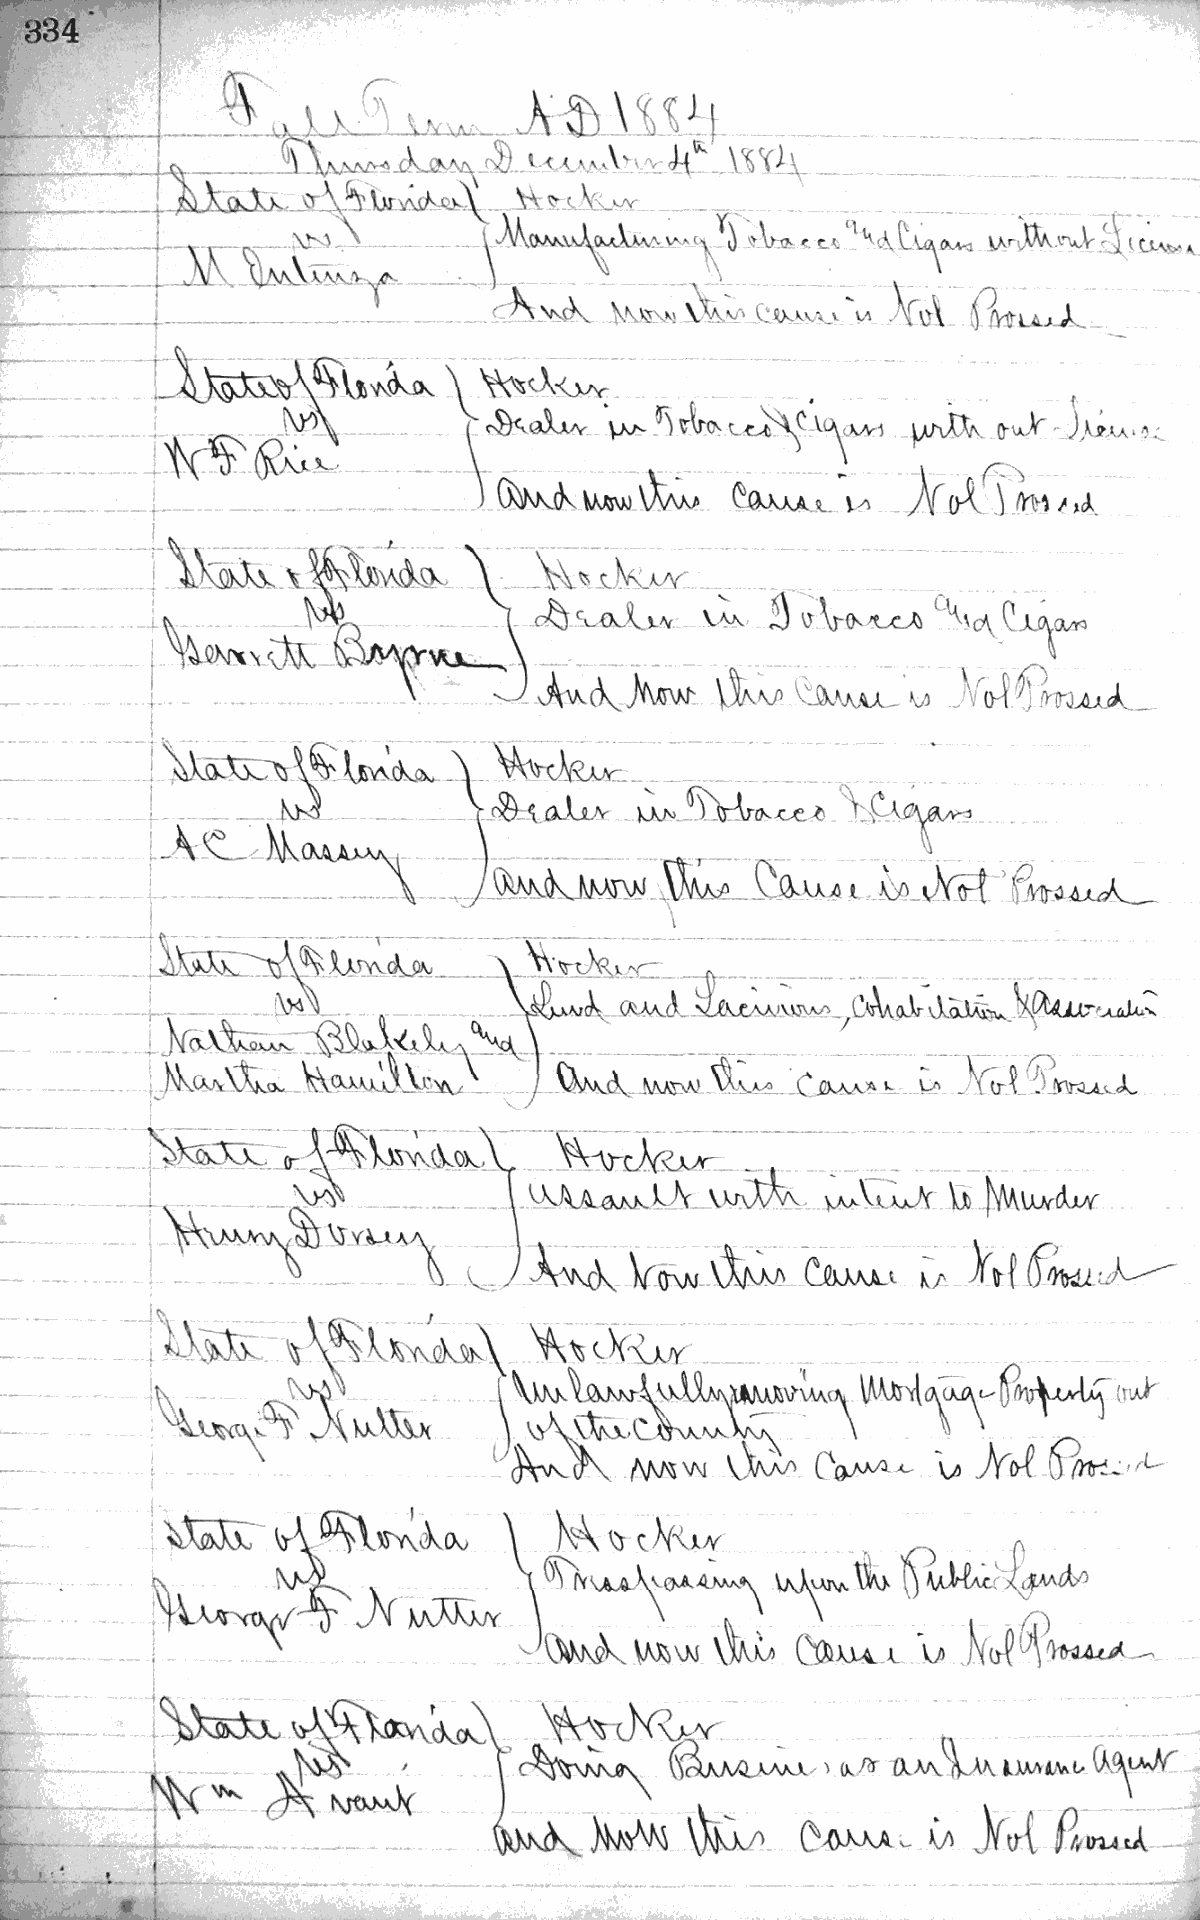 334
Fall Term A D 1884
Thursday December 4th 1884
State of Florida } Hocker
vs } Manufacturing Tobacco and Cigars without License
M Intenza
And now this cause is Nol Prossed
State of Florida } Hocker
vs } Dealer in Tobacco & Cigars with out License
W F Rice
and now this cause is Nol Prossed
State of Florida } Hocker
vs } Dealer in Tobacco and Cigars
Garrett Byrne
And Now this Cause is Nol Prossed
State of Florida } Hocker
vs } Dealer in Tobacco & Cigars
A C Massey
and now this Cause is Nol Prossed
State of Florida } Hocker
vs } Lewd and Lacivious, Cohabitation & Association
Nathan Blakely and
Martha Hamilton } and now this cause is Nol Prossed
State of Florida } Hocker
vs } assault with intent to Murder
Henry Dorsey
And Now this cause is Nol Prossed
State of Florida } Hocker
vs } Unlawfully removing Mortgage Property out
George F Nutter } of the County
And now this Cause is Nol Prossed
State of Florida } Hocker
vs } Tresspassing upon the Public Lands
George F Nutter
and now this Cause is Nol Prossed
State of Florida } Hocker
vs } Doing Business as an Insurance Agent
Wm Avant
and Now this Cause is Nol Prossed